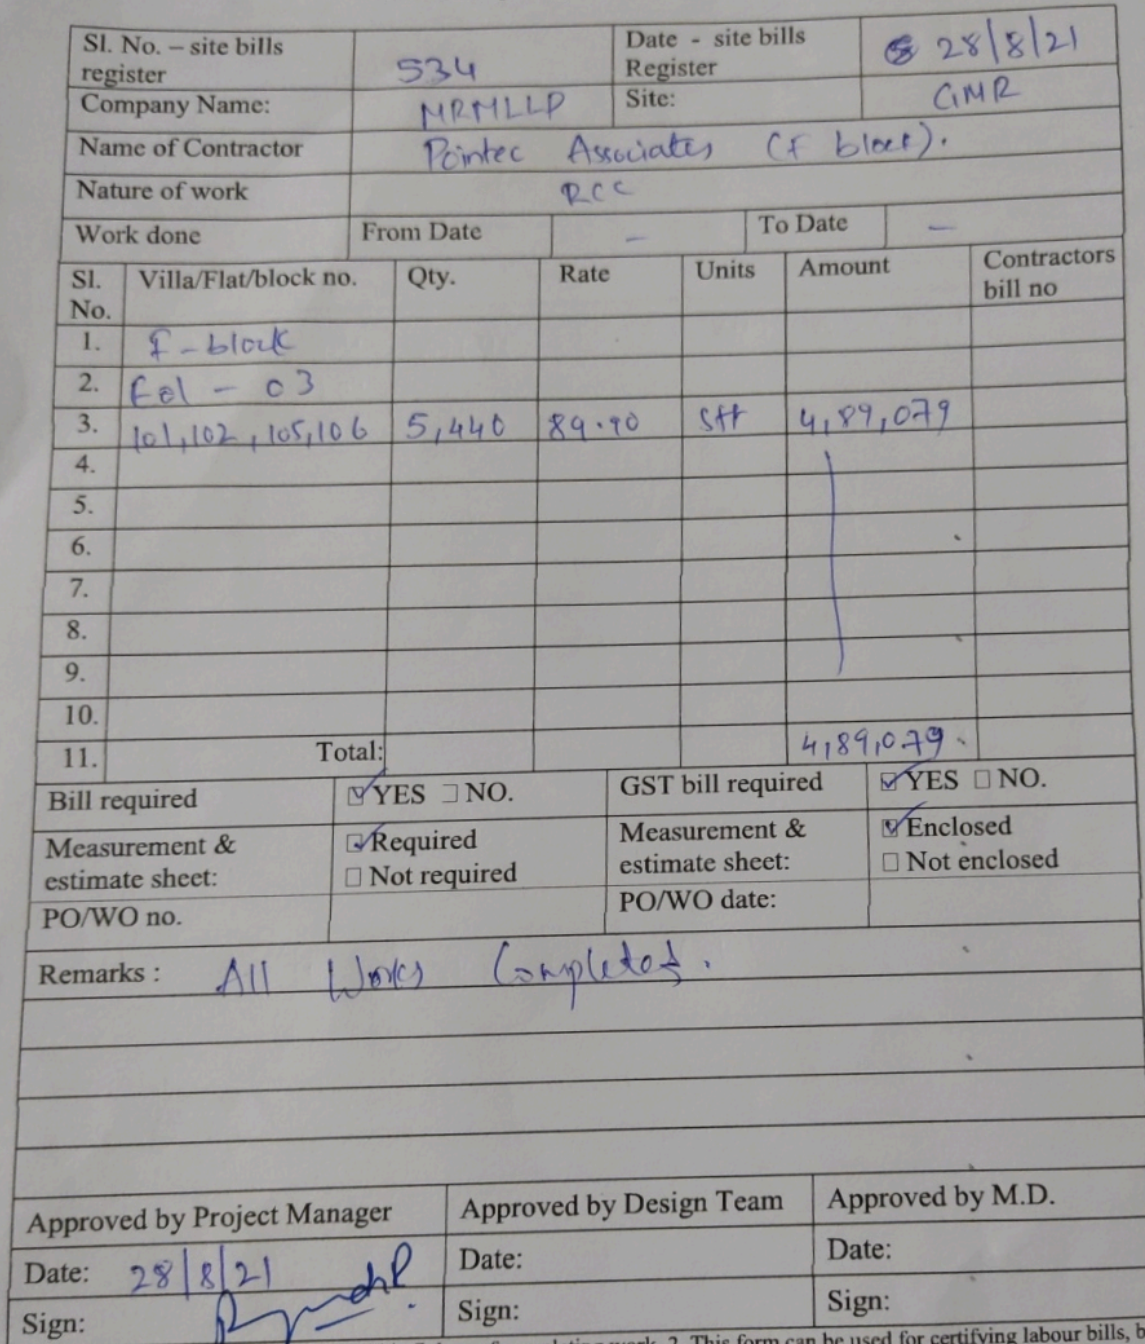 Sl. No. – site bills register 534 Date - site bills Register 28/8/21
Company Name: MRMLLP Site: GMR
Name of Contractor Pointec Associates (F block).
Nature of work RCC
Work done From Date – To Date –
Sl. No. Villa/Flat/block no. Qty. Rate Units Amount Contractors bill no
1. F-block
2. - 03
3. 101,102,105,106 5,440 89.90 sft 4,89,079
4.
5.
6.
7.
8.
9.
10.
11. Total: 4,89,079
Bill required ☑ YES ☐ NO. GST bill required ☑ YES ☐ NO.
Measurement & estimate sheet: ☑ Required ☐ Not required Measurement & estimate sheet: ☑ Enclosed ☐ Not enclosed
PO/WO no. PO/WO date:
Remarks : All Works Completed.
Approved by Project Manager Approved by Design Team Approved by M.D.
Date: 28/8/21 Date: Date:
Sign: Sign: Sign:
2. This form can be used for certifying labour bills,